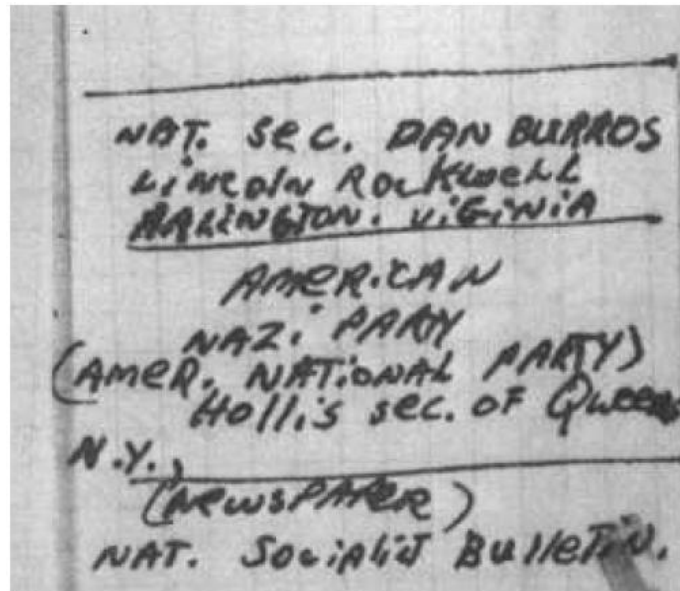 NAT. SEC. DAN BURROS
LINCOLN ROCKWELL
ARLINGTON. VIGINIA
AMERICAN
NAZI PARTY
(AMER. NATIONAL PARTY)
Hollis sec. of Queens
N.Y.,
(NEWSPAPER)
NAT. Socialist BulleTiN.